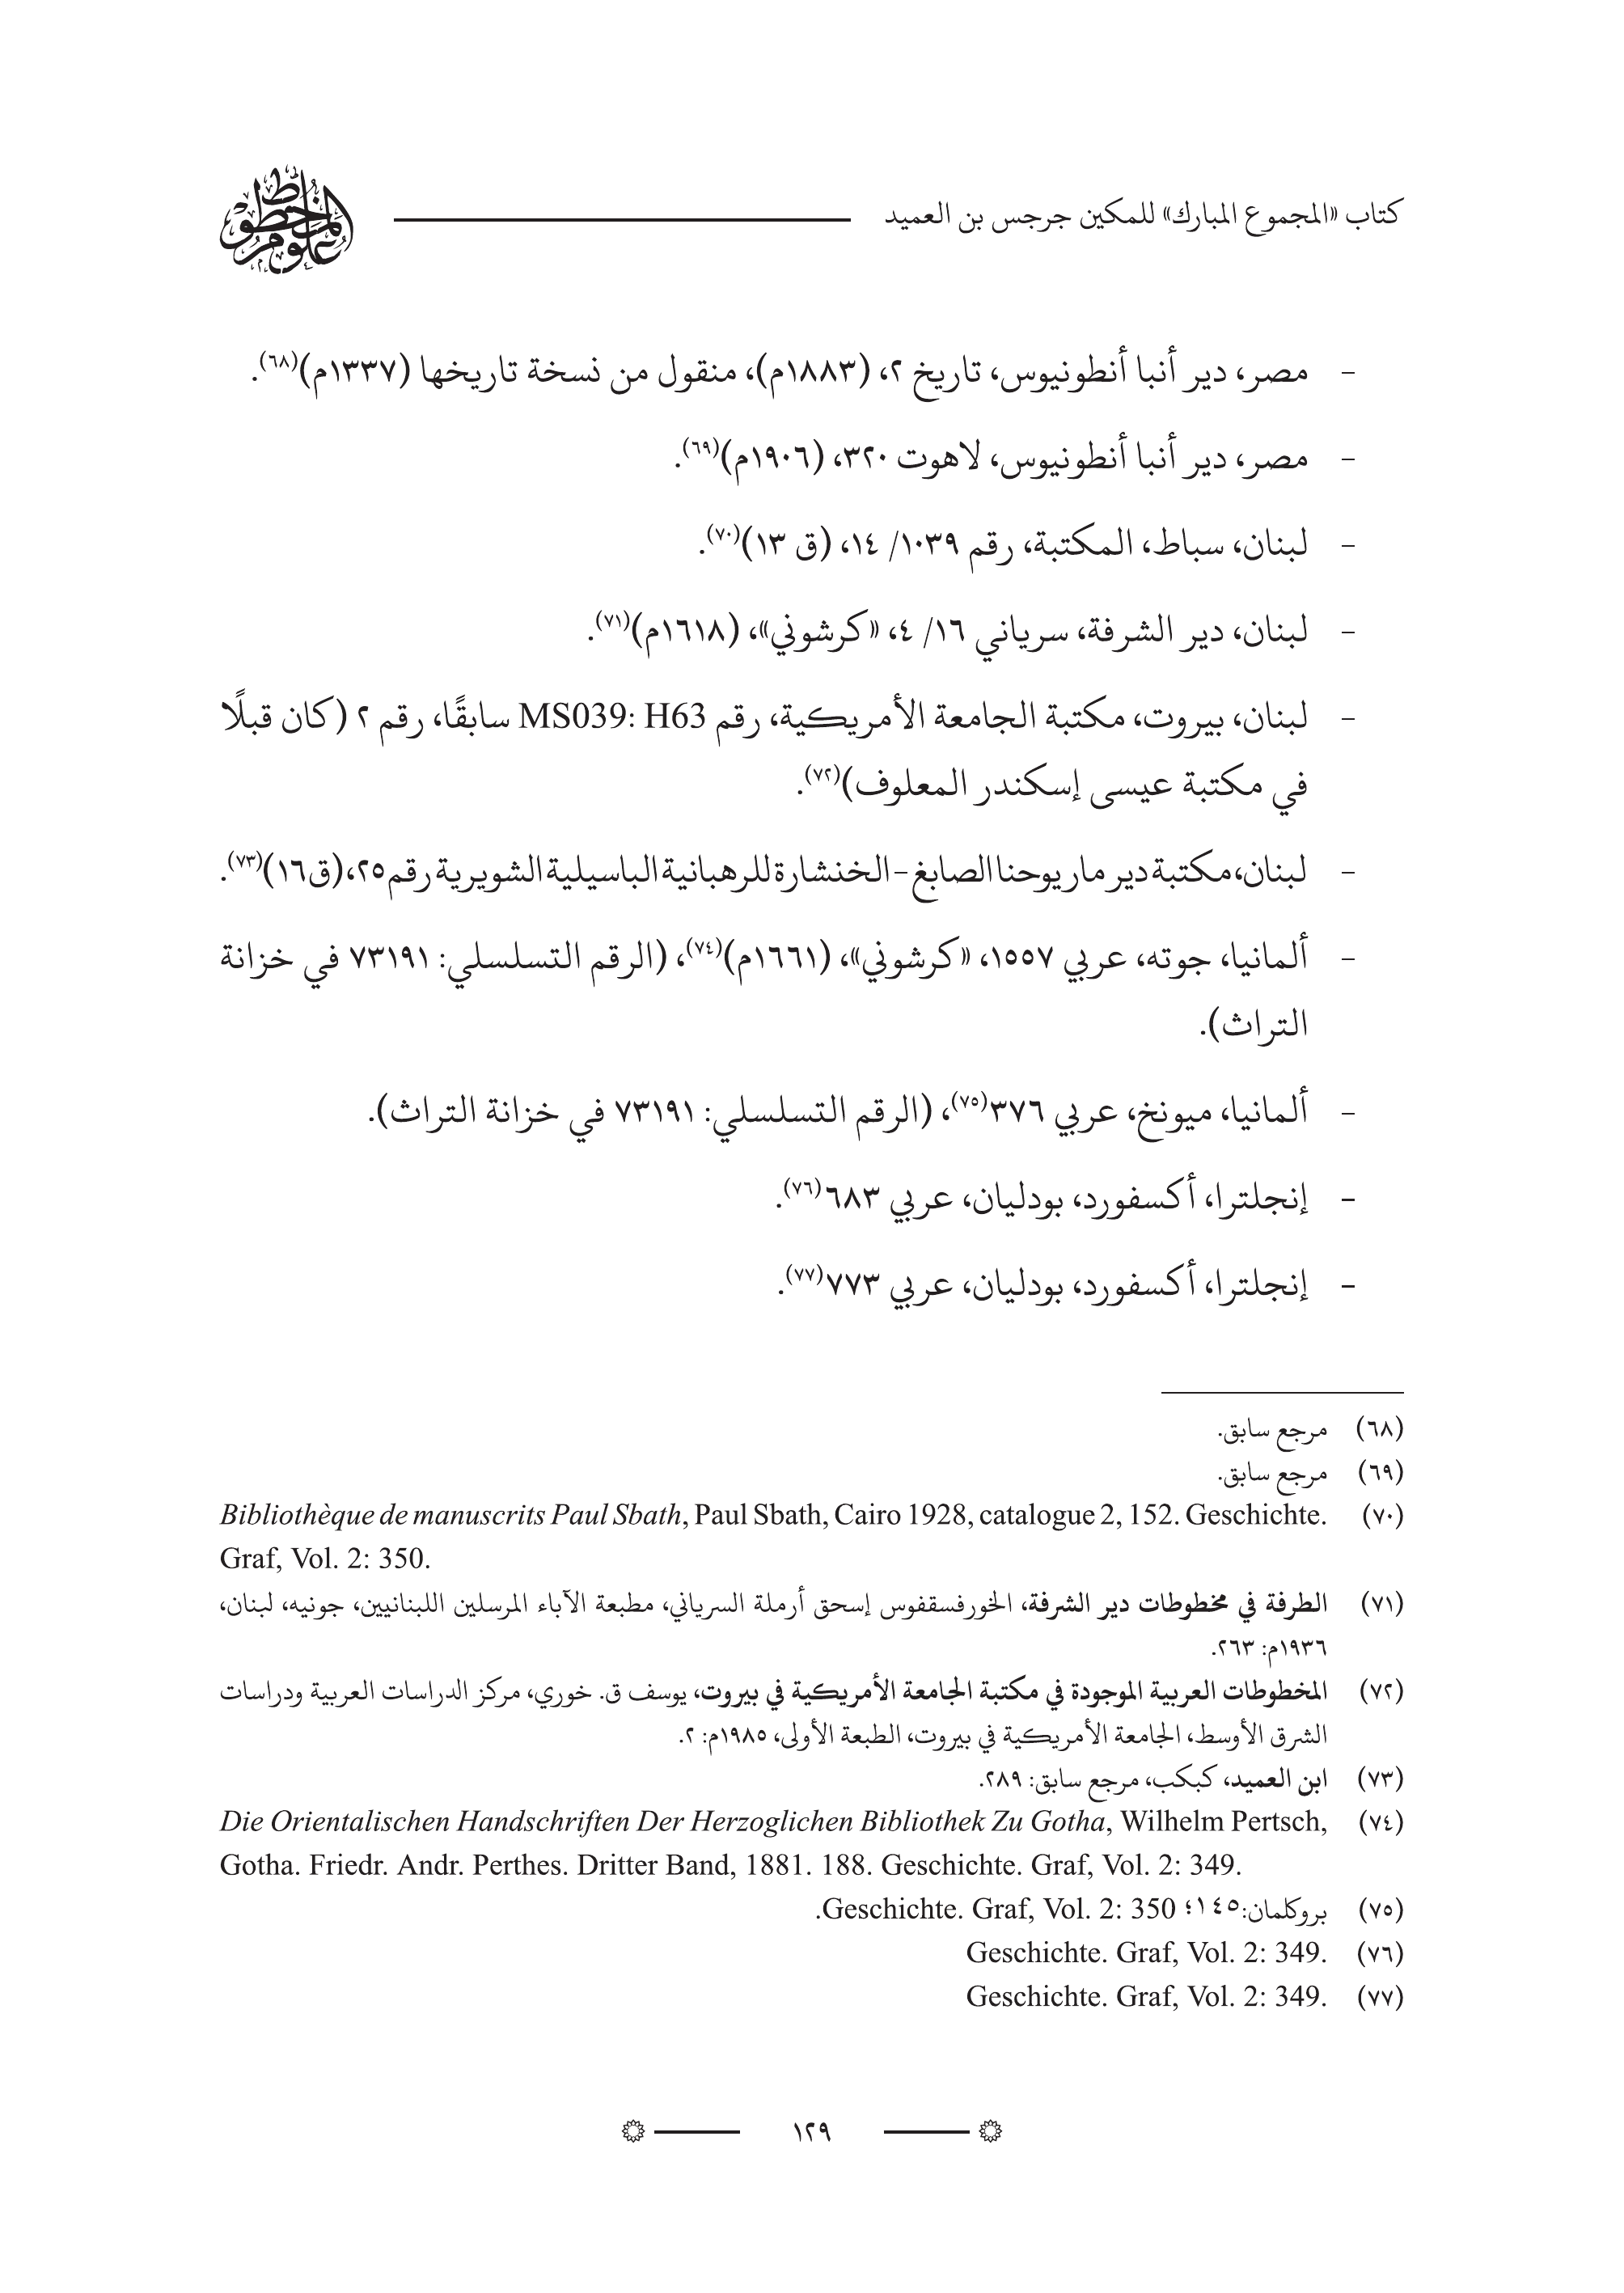 كتاب «المجموع المبارك» للمكين جرجس بن العميد
علوم المخطوط
- مصر، دير أنبا أنطونيوس، تاريخ ٢، (١٨٨٣م)، منقول من نسخة تاريخها (١٣٣٧م)(٦٨).
- مصر، دير أنبا أنطونيوس، لاهوت ٣٢٠، (١٩٠٦م)(٦٩).
- لبنان، سباط، المكتبة، رقم ١٠٣٩/ ١٤، (ق ١٣)(٧٠).
- لبنان، دير الشرفة، سرياني ١٦/ ٤، «كرشوني»، (١٦١٨م)(٧١).
- لبنان، بيروت، مكتبة الجامعة الأمريكية، رقم MS039: H63 سابقًا، رقم ٢ (كان قبلًا
في مكتبة عيسى إسكندر المعلوف)(٧٢).
- لبنان، مكتبة دير مار يوحنا الصابغ - الخنشارة للرهبانية الباسيلية الشويرية رقم ٢٥، (ق١٦)(٧٣).
- ألمانيا، جوته، عربي ١٥٥٧، «كرشوني»، (١٦٦١م)(٧٤)، (الرقم التسلسلي: ٧٣١٩١ في خزانة
التراث).
- ألمانيا، ميونخ، عربي ٣٧٦(٧٥)، (الرقم التسلسلي: ٧٣١٩١ في خزانة التراث).
- إنجلترا، أكسفورد، بودليان، عربي ٦٨٣(٧٦).
- إنجلترا، أكسفورد، بودليان، عربي ٧٧٣(٧٧).
(٦٨) مرجع سابق.
(٦٩) مرجع سابق.
(٧٠) Bibliothèque de manuscrits Paul Sbath, Paul Sbath, Cairo 1928, catalogue 2, 152. Geschichte.
Graf, Vol. 2: 350.
(٧١) الطرفة في مخطوطات دير الشرفة، الخورفسقفوس إسحق أرملة السرياني، مطبعة الآباء المرسلين اللبنانيين، جونيه، لبنان،
١٩٣٦م: ٢٦٣.
(٧٢) المخطوطات العربية الموجودة في مكتبة الجامعة الأمريكية في بيروت، يوسف ق. خوري، مركز الدراسات العربية ودراسات
الشرق الأوسط، الجامعة الأمريكية في بيروت، الطبعة الأولى، ١٩٨٥م: ٢.
(٧٣) ابن العميد، كبكب، مرجع سابق: ٢٨٩.
(٧٤) Die Orientalischen Handschriften Der Herzoglichen Bibliothek Zu Gotha, Wilhelm Pertsch,
Gotha. Friedr. Andr. Perthes. Dritter Band, 1881. 188. Geschichte. Graf, Vol. 2: 349.
(٧٥) بروكلمان:١٤٥؛ Geschichte. Graf, Vol. 2: 350.
(٧٦) Geschichte. Graf, Vol. 2: 349.
(٧٧) Geschichte. Graf, Vol. 2: 349.
١٢٩